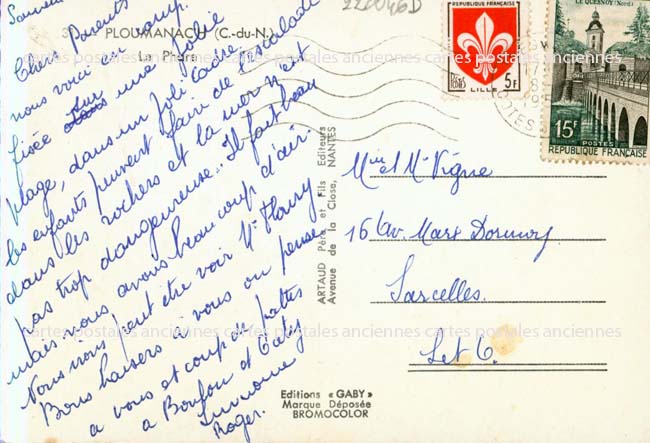 226046D
PLOUMANACH (C.-du-N.)
La Phare
Chers Parents
nous voici au camp.
fixée sur une jolie
plage, dans un joli cadre
les enfants peuvent faire de l'escalade
dans les rochers et la mer n'est
pas trop dangeureuse. Il fait beau
mais nous avons beaucoup d'air.
Nous irons peut être voir Mr Fleury
Bons baisers à vous on pense
a vous et coup de pattes
a Boufou et
Roger.
ARTAUD Père et Fils Editeurs
Avenue de la Close, NANTES
Editions « GABY »
Marque Déposée
BROMOCOLOR
REPUBLIQUE FRANÇAISE
POSTES
LILLE
5F
LE QUESNOY (Nord)
15F
POSTES
REPUBLIQUE FRANÇAISE
Mme et Mr Vigne
16 Av. Marx Dormoy
Sarcelles.
S et O.
cartes postales anciennes cartes postales anciennes cartes postales anciennes